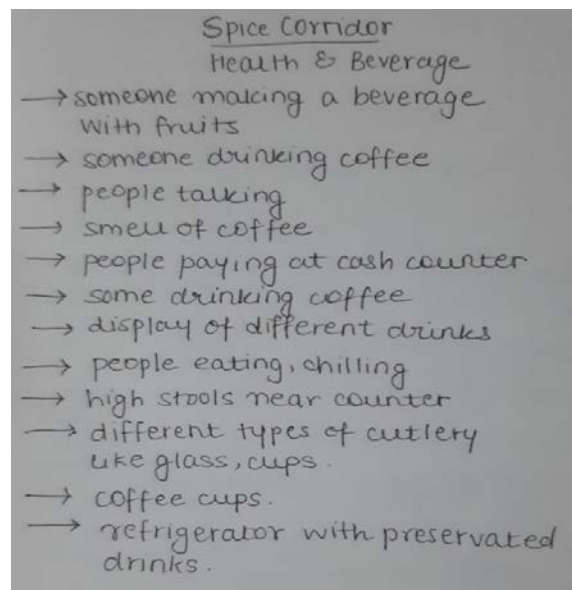 Spice Corridor
Health & Beverage
→ someone making a beverage
with fruits
→ someone drinking coffee
→ people talking
→ smell of coffee
→ people paying at cash counter
→ some drinking coffee
→ display of different drinks
→ people eating, chilling
→ high stools near counter
→ different types of cutlery
like glass, cups.
→ coffee cups.
→ refrigerator with preservated
drinks.